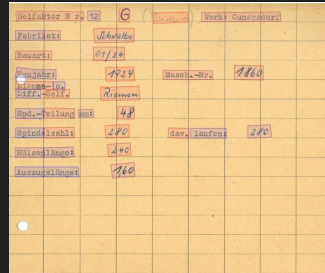 Selfaktor N r. 12 G Werk: Cunersdorf
Fabrikat: Schwalbe
Bauart: 01/24
Baujahr: 1924 Masch.-Nr. 1860
Riemen-/o.
Diff.-Self. Riemen
Spd.-Teilung mm: 48
Spindelzahl: 280 dav. laufen: 280
Hülsenlänge: 240
Auszugslänge: 160